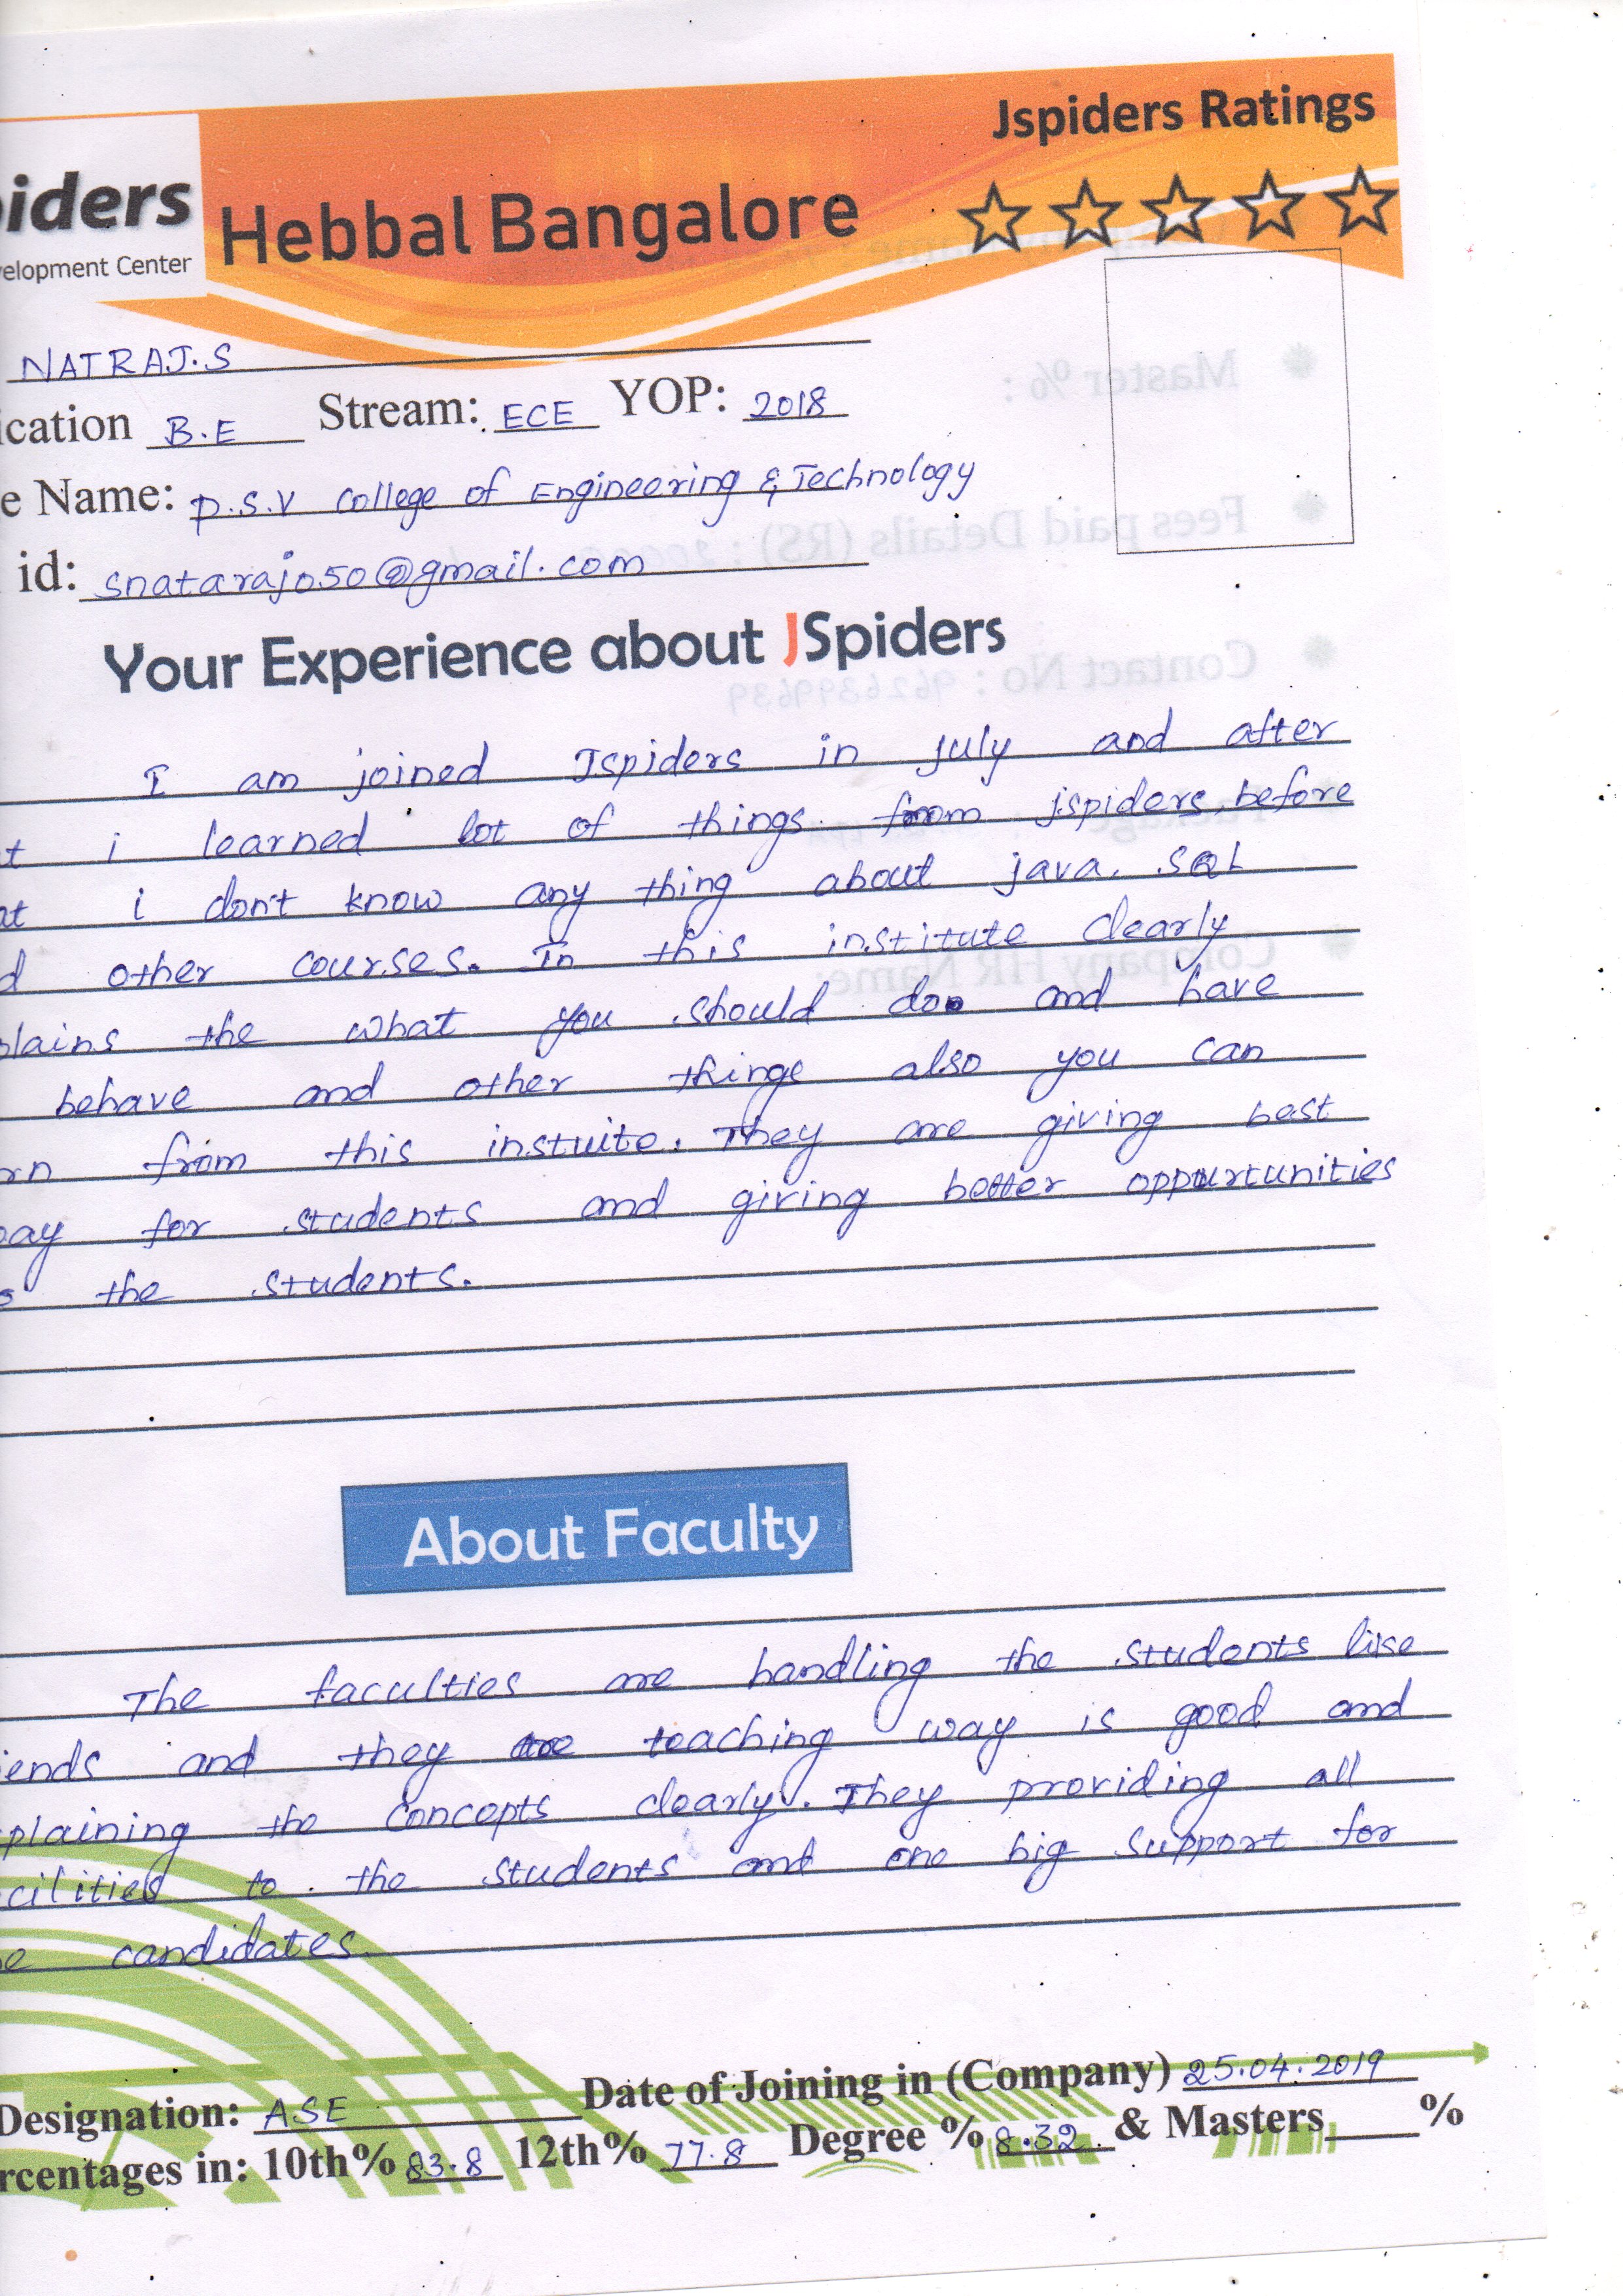 Jspiders Ratings
iders Hebbal Bangalore
velopment Center
NATRAJ.S
ication B.E Stream: ECE YOP: 2018
e Name: P.S.V College of Engineering & Technology
id: snataraj050@gmail.com
Your Experience about JSpiders
I am joined Jspiders in july and after
t i learned lot of things from jspiders, before
at i don't know any thing about java, SQL
d other courses. In this institute clearly
plains the what you should do and have
behave and other things also you can
rn from this instuite. They are giving best
way for students and giving better oppurtunities
o the students.
About Faculty
The faculties are handling the students like
iends and they teaching way is good and
plaining the concepts clearly. They providing all
cilities to the students and one big support for
e candidates.
Designation: ASE Date of Joining in (Company) 25.04.2019
rcentages in: 10th% 83.8 12th% 77.8 Degree % 8.32 & Masters %
Master % :
Fees paid Details (RS) :
Contact No : 9626399639
Company HR Name